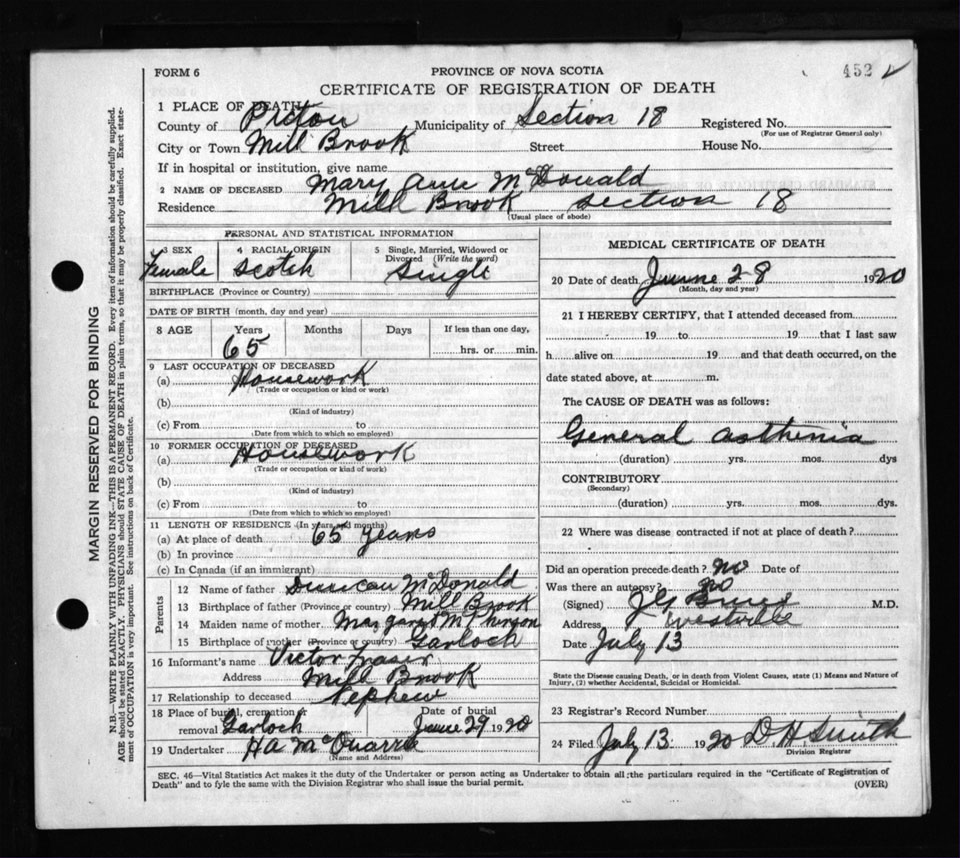 FORM 6
PROVINCE OF NOVA SCOTIA
452
CERTIFICATE OF REGISTRATION OF DEATH
1 PLACE OF DEATH
County of Pictou Municipality of Section 18 Registered No.
(For use of Registrar General only)
City or Town Mill Brook Street House No.
If in hospital or institution, give name
2 NAME OF DECEASED Mary Ann McDonald
Residence Mill Brook Section 18
(Usual place of abode)
PERSONAL AND STATISTICAL INFORMATION
3 SEX Female
4 RACIAL ORIGIN Scotch
5 Single, Married, Widowed or Divorced (Write the word) Single
BIRTHPLACE (Province or Country)
DATE OF BIRTH (month, day and year)
8 AGE Years 65 Months Days If less than one day, hrs. or min.
9 LAST OCCUPATION OF DECEASED
(a) Housework
(Trade or occupation or kind or work)
(b)
(Kind of industry)
(c) From to
(Date from which to which so employed)
10 FORMER OCCUPATION OF DECEASED
(a) Housework
(Trade or occupation or kind of work)
(b)
(Kind of industry)
(c) From to
(Date from which to which so employed)
11 LENGTH OF RESIDENCE (In years and months)
(a) At place of death 65 years
(b) In province
(c) In Canada (if an immigrant)
Parents
12 Name of father Duncan McDonald
13 Birthplace of father (Province or country) Mill Brook
14 Maiden name of mother Margaret
15 Birthplace of mother (Province or country) Garloch
16 Informant's name Victor Fraser
Address Mill Brook
17 Relationship to deceased Nephew
18 Place of burial, cremation or removal Garloch Date of burial June 29 1920
19 Undertaker H A McQuarrie
(Name and Address)
MEDICAL CERTIFICATE OF DEATH
20 Date of death June 28 1920
(Month, day and year)
21 I HEREBY CERTIFY, that I attended deceased from
19 to 19 that I last saw
h alive on 19 and that death occurred, on the
date stated above, at m.
The CAUSE OF DEATH was as follows:
General asthenia
(duration) yrs. mos. dys
CONTRIBUTORY
(Secondary)
(duration) yrs. mos. dys.
22 Where was disease contracted if not at place of death?
Did an operation precede death? no Date of
Was there an autopsy? no
(Signed) M.D.
Address Westville
Date July 13
State the Disease causing Death, or in death from Violent Causes, state (1) Means and Nature of
Injury, (2) whether Accidental, Suicidal or Homicidal.
23 Registrar's Record Number
24 Filed July 13 1920 D. H. Smith
Division Registrar
SEC. 46—Vital Statistics Act makes it the duty of the Undertaker or person acting as Undertaker to obtain all the particulars required in the "Certificate of Registration of
Death" and to fyle the same with the Division Registrar who shall issue the burial permit.
(OVER)
MARGIN RESERVED FOR BINDING
N.B.—WRITE PLAINLY WITH UNFADING INK—THIS IS A PERMANENT RECORD. Every item of information should be carefully supplied.
AGE should be stated EXACTLY. PHYSICIANS should STATE CAUSE OF DEATH in plain terms, so that it may be properly classified. Exact state-
ment of OCCUPATION is very important. See instructions on back of Certificate.